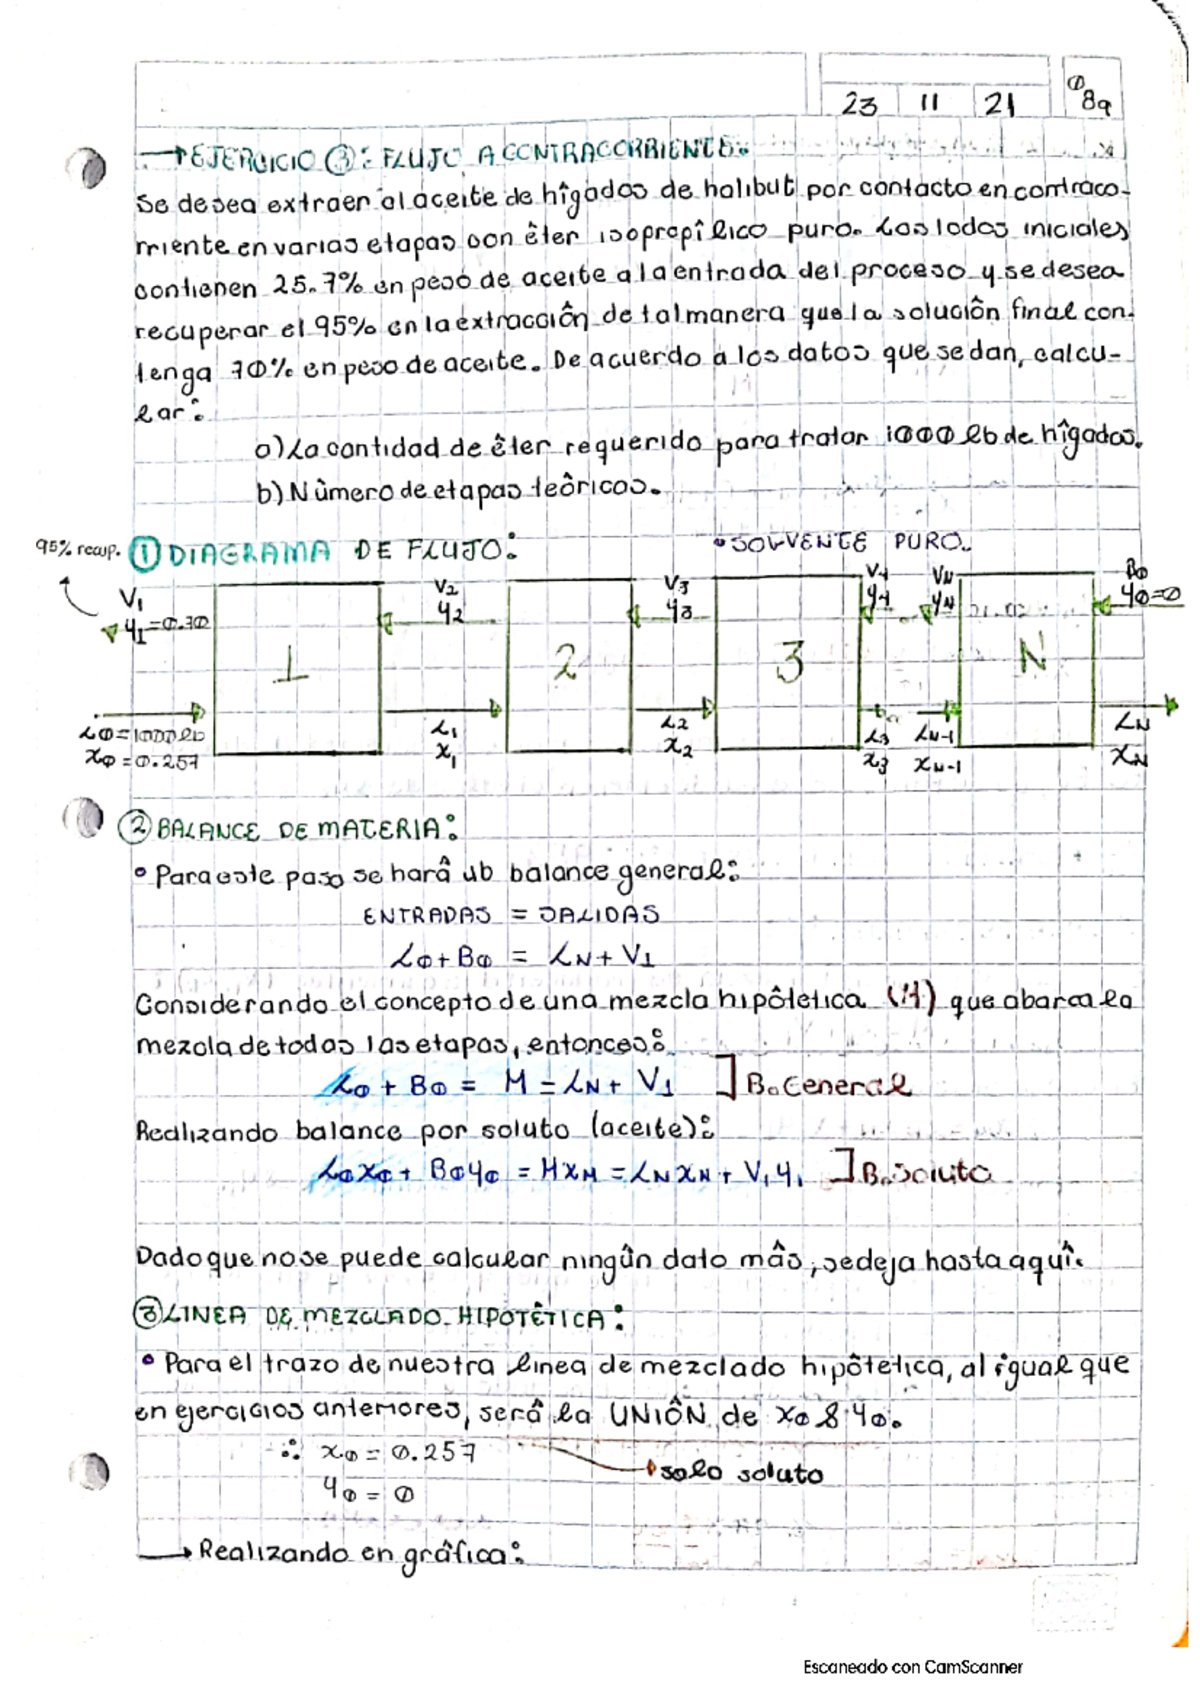 23 11 21 89
→ EJERCICIO ③: FLUJO A CONTRACORRIENTE:
Se desea extraer al aceite de hîgados de halibut por contacto en contraco-
rriente en varias etapas con êter isopropîlico puro. Los lodos iniciales
contienen 25.7% en peso de aceite a la entrada del proceso y se desea
recuperar el 95% en la extracciôn de tal manera que la soluciôn final con-
tenga 70% en peso de aceite. De acuerdo a los datos que se dan, calcu-
lar:
a) La cantidad de êter requerido para tratar 1000 lb de hîgados.
b) Nûmero de etapas teôricos.
95% recup. ① DIAGRAMA DE FLUJO: • SOLVENTE PURO.
V1 V2 V3 V4 VN B0
y1=0.70 y2 y3 y4 yN y0=0
1 2 3 N
L0=1000 lb L1 L2 L3 LN-1 LN
x0=0.257 x1 x2 x3 xN-1 xN
② BALANCE DE MATERIA:
• Para este paso se harâ ub balance general:
ENTRADAS = SALIDAS
L0 + B0 = LN + V1
Considerando el concepto de una mezcla hipôtetica (M) que abarca la
mezcla de todas las etapas, entonces:
L0 + B0 = M = LN + V1 ] B. General
Realizando balance por soluto (aceite):
L0x0 + B0y0 = MxM = LNxN + V1y1 ] B. Soluto
Dado que no se puede calcular ningûn dato mâs, se deja hasta aquî.
③ LINEA DE MEZCLADO HIPOTÊTICA:
• Para el trazo de nuestra linea de mezclado hipôtetica, al igual que
en ejercicios anteriores, serâ la UNIÔN de x0 & y0.
∴ x0 = 0.257 → solo soluto
y0 = 0
→ Realizando en grâfica:
Escaneado con CamScanner